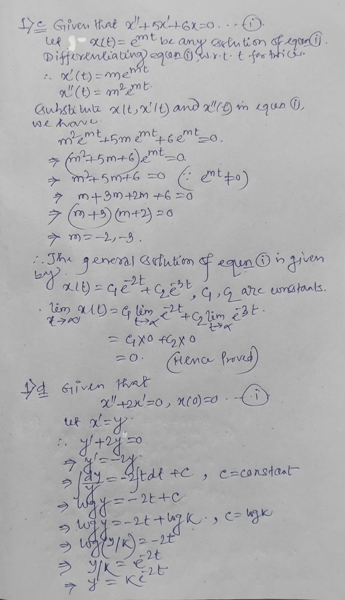 1) c Given that x''+5x'+6x=0. --- (i)
let x(t)=e^{mt} be any solution of equn (i).
Differentiating equn (i) w.r.t. t for twice.
∴ x'(t)=me^{mt}
x''(t)=m²e^{mt}
Substitute x(t), x'(t) and x''(t) in equn (i),
we have
m²e^{mt}+5me^{mt}+6e^{mt}=0.
⇒ (m²+5m+6)e^{mt}=0
⇒ m²+5m+6=0 (∵ e^{mt}≠0)
⇒ m+3m+2m+6=0
⇒ (m+3)(m+2)=0
⇒ m=-2,-3.
∴ The general solution of equn (i) is given
by x(t)=C₁e^{-2t}+C₂e^{-3t}, C₁, C₂ are constants.
∴ lim_{x→∞} x(t)=C₁ lim_{t→∞} e^{-2t}+C₂ lim_{t→∞} e^{-3t}
= C₁×0+C₂×0
= 0. (Hence Proved)
1) d Given that
x''+2x'=0, x(0)=0 --- (i)
let x'=y
∴ y'+2y=0
⇒ y'=-2y
⇒ ∫dy/y=-2∫dt+c, c=constant
⇒ log y=-2t+c
⇒ log y=-2t+log k, c=log k
⇒ log(y/k)=-2t
⇒ y/k=e^{-2t}
⇒ y=ke^{-2t}